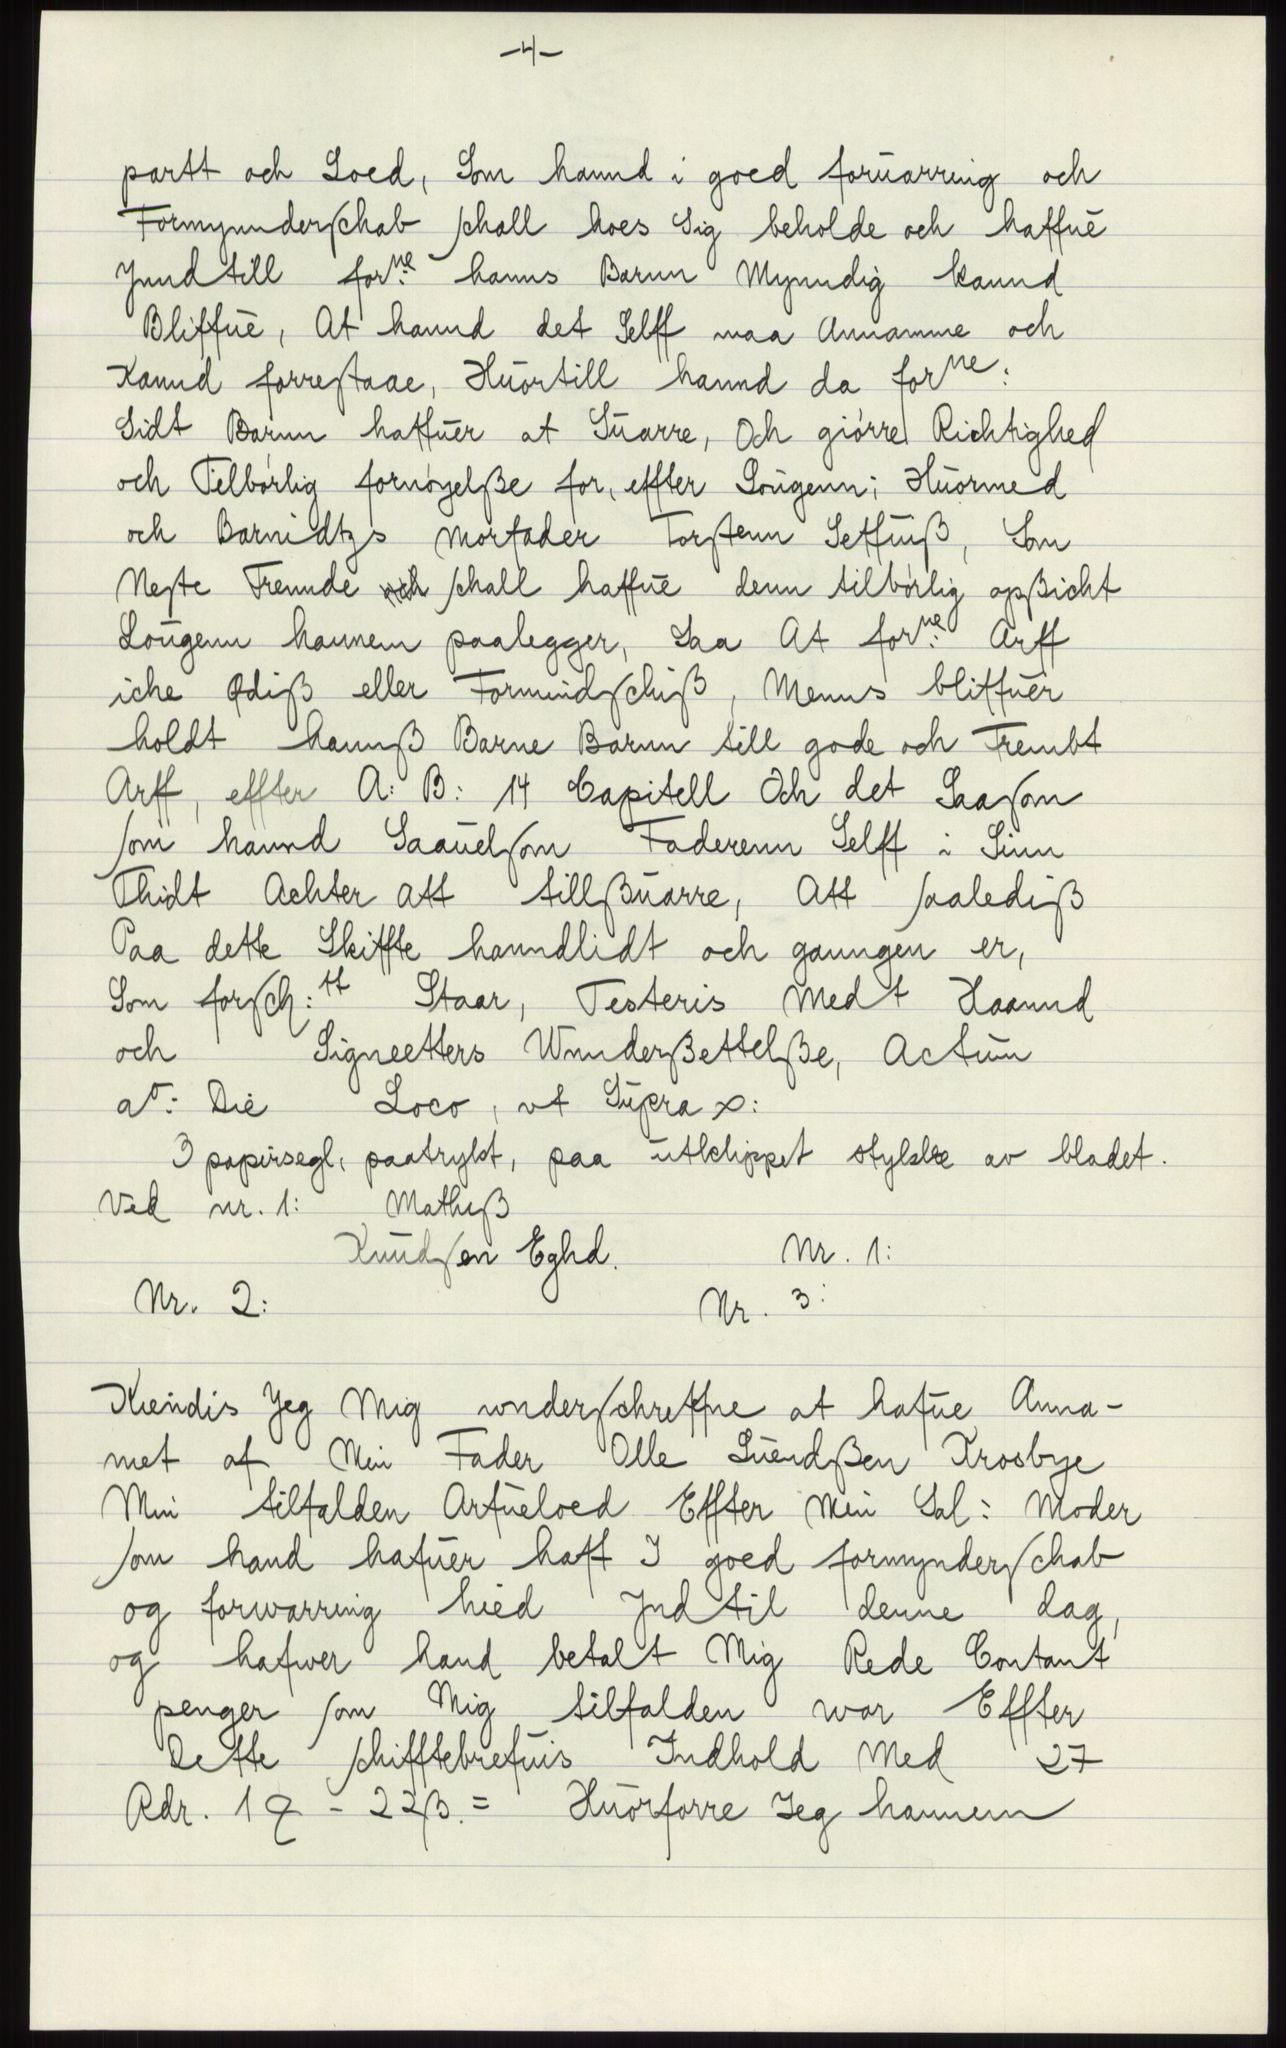 -4-
partt och Loed, Som hannd i goed foruarring och
Formynnderschab schall hoes Sig beholde och haffue
Jnndtill for<sup>ne</sup>: hanns Barnn Mynndig kannd
Bliffue, At hannd det Selff maa Annamme och
Kannd forrestaae, Huortill hannd da for<sup>ne</sup>:
Sidt Barnn haffuer at Suarre, Och giørre Richtighed
och Tilbørlig fornøyelsße for, effter Lougenn; Huormed
och Barnidtzs Morfader Torstenn Setffuß, Som
Neste Frennde schall haffue denn tilbørlig opßicht
Lougenn hannem paalegger, Saa At for<sup>ne</sup>: Arff
iche ødiß eller Formindschiß, Menns bliffuer
holdt hannß Barne Barnn till gode och Frembt
Arff, effter A: B: 14 Capitell Och det Saasom
som hannd Saauelsom Faderenn Selff i Sinn
Thidt Achter att tillßuarre, Att saalediß
Paa dette Skiffte hanndlidt och ganngen er,
Som forsch:<sup>tt</sup> Staar, Testeris Medt Haannd
och Signeetters Wnnderßettelße, Actum
a<sup>o</sup>: Die Loco, ut Supra
3 papirsegl, paatrykt, paa utklippet stykke av bladet.
Ved nr. 1: Mathiß
Knudsen Eghd. Nr. 1:
Nr. 2: Nr. 3:
Kiendis Jeg Mig underschreffne at hafue Anna-
met af Min Fader Olle Suendßen Krosbye
Min tilfalden Arfueloed Effter Min Sal: Moder
som hand hafuer haft I goed formynderschab
og forwarring hied Jndtil denne dag,
og hafwer hand betalt Mig Rede Contant
penger som Mig tilfalden war Effter
Dette schifftebrefuis Indhold Med 27
Rdr. 1 - 22ß. = Huorforre Jeg hannem